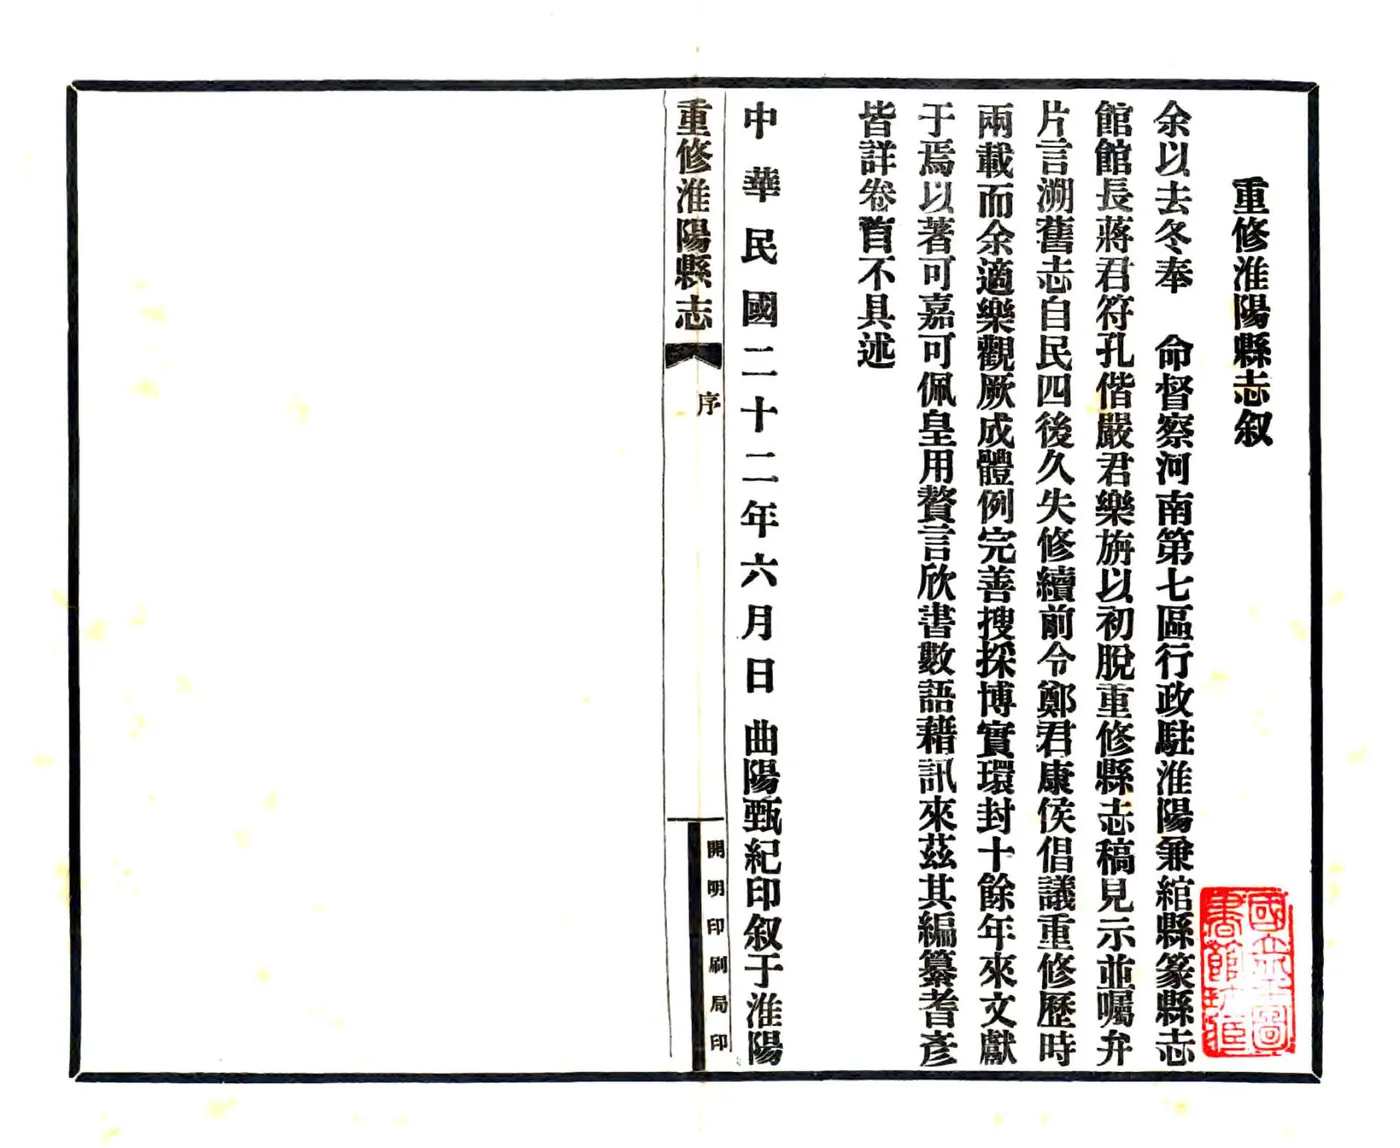 重修淮陽縣志叙
余以去冬奉　命督察河南第七區行政駐淮陽兼綰縣篆縣志
館館長蔣君符孔偕嚴君樂旃以初脫重修縣志稿見示並囑弁
片言溯舊志自民四後久失修續前令鄭君康侯倡議重修歷時
兩載而余適樂觀厥成體例完善搜採博實環封十餘年來文獻
于焉以著可嘉可佩皇用贅言欣書數語藉訊來茲其編纂耆彥
皆詳卷首不具述
中華民國二十二年六月日　曲陽甄紀印叙于淮陽
重修淮陽縣志
序
開明印刷局印